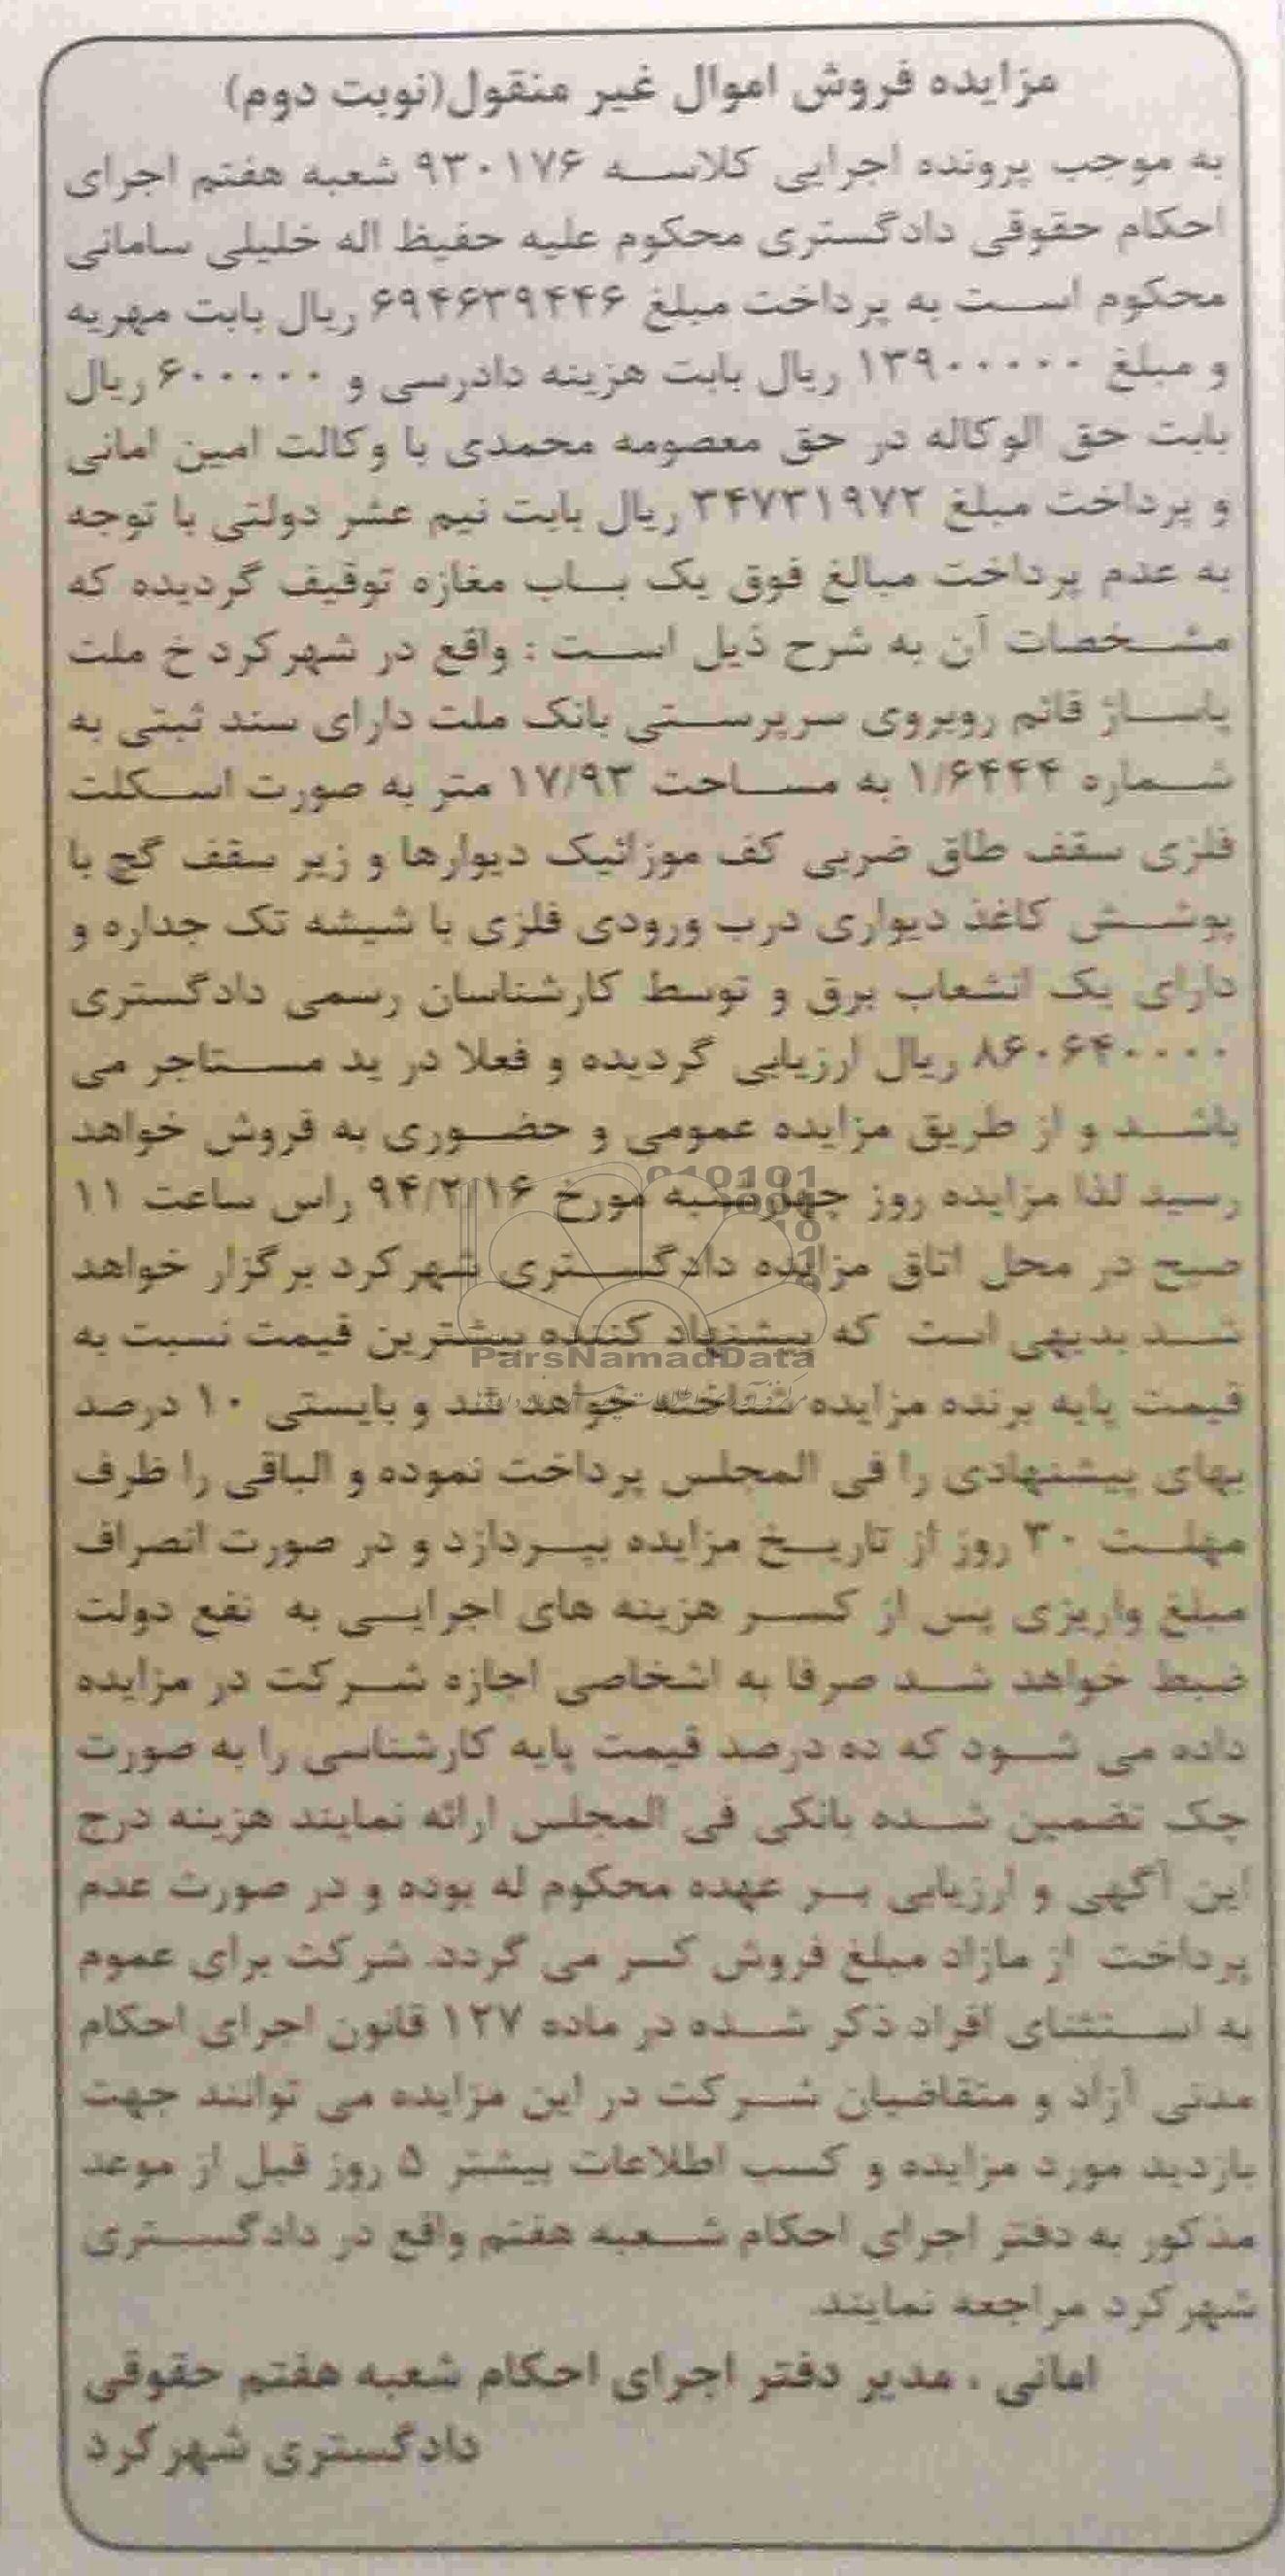 مزایده فروش اموال غیر منقول(نوبت دوم)
به موجب پرونده اجرایی کلاسه ۹۳۰۱۷۶ شعبه هفتم اجرای
احکام حقوقی دادگستری محکوم علیه حفیظ اله خلیلی سامانی
محکوم است به پرداخت مبلغ ۶۹۴۶۳۹۴۴۶ ریال بابت مهریه
و مبلغ ۱۳۹۰۰۰۰۰ ریال بابت هزینه دادرسی و ۶۰۰۰۰۰ ریال
بابت حق الوکاله در حق معصومه محمدی با وکالت امین امانی
و پرداخت مبلغ ۳۴۷۳۱۹۷۲ ریال بابت نیم عشر دولتی با توجه
به عدم پرداخت مبالغ فوق یک باب مغازه توقیف گردیده که
مشخصات آن به شرح ذیل است : واقع در شهرکرد خ ملت
پاساژ قائم روبروی سرپرستی بانک ملت دارای سند ثبتی به
شماره ۱/۶۴۴۴ به مساحت ۱۷/۹۳ متر به صورت اسکلت
فلزی سقف طاق ضربی کف موزائیک دیوارها و زیر سقف گچ با
پوشش کاغذ دیواری درب ورودی فلزی با شیشه تک جداره و
دارای یک انشعاب برق و توسط کارشناسان رسمی دادگستری
۸۶۰۶۴۰۰۰۰ ریال ارزیابی گردیده و فعلا در ید مستاجر می
باشد و از طریق مزایده عمومی و حضوری به فروش خواهد
رسید لذا مزایده روز چهارشنبه مورخ ۹۴/۲/۱۶ راس ساعت ۱۱
صبح در محل اتاق مزایده دادگستری شهرکرد برگزار خواهد
شد بدیهی است که پیشنهاد کننده بیشترین قیمت نسبت به
قیمت پایه برنده مزایده شناخته خواهد شد و بایستی ۱۰ درصد
بهای پیشنهادی را فی المجلس پرداخت نموده و الباقی را ظرف
مهلت ۳۰ روز از تاریخ مزایده بپردازد و در صورت انصراف
مبلغ واریزی پس از کسر هزینه های اجرایی به نفع دولت
ضبط خواهد شد صرفا به اشخاصی اجازه شرکت در مزایده
داده می شود که ده درصد قیمت پایه کارشناسی را به صورت
چک تضمین شده بانکی فی المجلس ارائه نمایند هزینه درج
این آگهی و ارزیابی بر عهده محکوم له بوده و در صورت عدم
پرداخت از مازاد مبلغ فروش کسر می گردد. شرکت برای عموم
به استثنای افراد ذکر شده در ماده ۱۲۷ قانون اجرای احکام
مدنی آزاد و متقاضیان شرکت در این مزایده می توانند جهت
بازدید مورد مزایده و کسب اطلاعات بیشتر ۵ روز قبل از موعد
مذکور به دفتر اجرای احکام شعبه هفتم واقع در دادگستری
شهرکرد مراجعه نمایند.
امانی ، مدیر دفتر اجرای احکام شعبه هفتم حقوقی
دادگستری شهرکرد
ParsNamadData